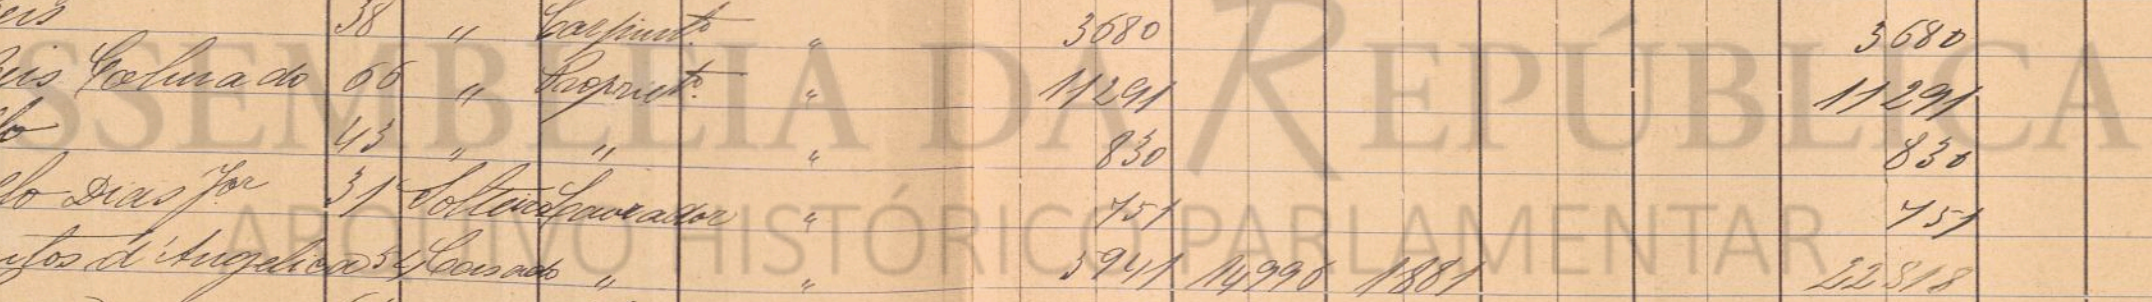 38 " Carpint.º " 3680 3680
eis Colmado 66 " Propriet.º " 11291 11291
lo 43 " " " 830 830
lo Dias Jor 31 Solteiro Lavrador " 751 751
ntos d'Angelica 54 Casado " " 5941 14996 1881 22818
ASSEMBLEIA DA REPÚBLICA
ARQUIVO HISTÓRICO PARLAMENTAR